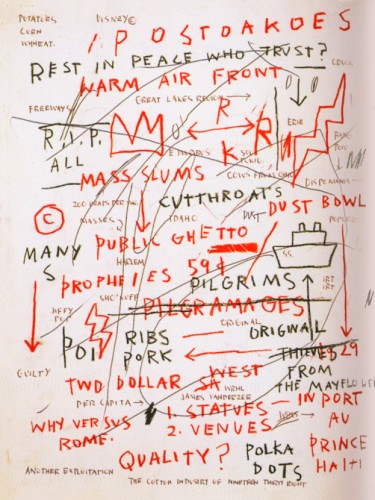 POTATOES DISNEY©
CORN
WHEAT.
POSTOAKOES
REST IN PEACE WHO TRUST?
WARM AIR FRONT
GREAT LAKES REGION
FREEWAYS
R
ERIE
R.I.P.
R
K
ALL
MASS SLUMS
CUTTHROATS
DUST BOWL
©
MASSES
IDAHO
MANY
S
PUBLIC GHETTO
HARLEM
PROPHEIES 594
S.S.
PILGRIMS
JIFFY
POP
PILGRAMAGES
ORIGINAL
POI
RIBS
PORK
ORIGINAL
THIEVES 29
GUILTY
TWO DOLLAR
WEST
SA
FROM
THE MAYFLOWER
PER CAPITA
JAMES VANDERZEE
WHY VERSUS
ROME.
1. STATUES — IN PORT
2. VENUES
AU
PRINCE
HAITI
QUALITY?
POLKA
DOTS
ANOTHER EXPLOITATION
THE COTTON INDUSTRY OF NINETEEN THIRTY EIGHT